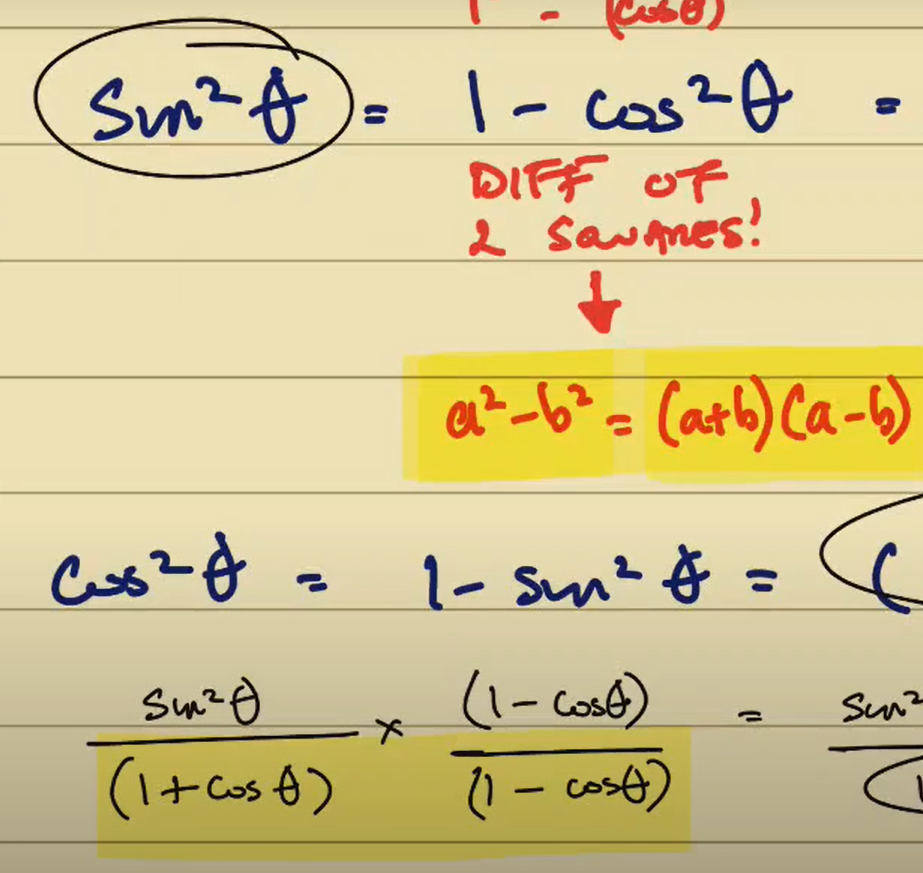 1 - (cosθ)
sin²θ = 1 - cos²θ =
DIFF OF
2 SQUARES!
a² - b² = (a+b)(a-b)
cos²θ = 1 - sin²θ = (
sin²θ/(1+cosθ) × (1-cosθ)/(1-cosθ) = sin²/(1